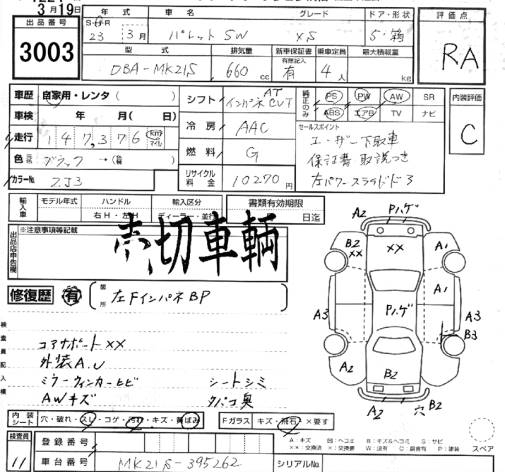 3月19日
年式 車名 グレード ドア・形状 評価点
出品番号 3003
S・H・R 23年 3月 パレットSW XS 5・箱
RA
型式 排気量 新車保証書 乗車定員 最大積載量
DBA-MK21S 660cc 有 4人 kg
車歴 自家用・レンタ( )
シフト AT インパネCVT
純正のみ PS PW AW SR
ABS エアB TV ナビ
内装評価 C
車検 年 月( 日)
走行 147,376 km マイル
冷房 AAC
セールスポイント
ユーザー下取車
保証書 取説つき
左パワースライドドア
色 ブラック→(替)
燃料 G
カラーNo ZJ3
リサイクル料金 10270円
輸入車 モデル年式 ハンドル 輸入区分 書類有効期限
右H・左H ディーラー・並行 日迄
出品店申告欄 ※注意事項等記載
売切車輌
修復歴 有 箇所 左FインパネBP
検査員記入欄
コアサポートXX
外装A.U
ミラーウィンカーヒビ シートシミ
AWキズ タバコ臭
A2 Pハゲ
B2 XX XX A1
A3 Pハゲ A1
A3 B3
B2
A2 A2 穴 B2
内装シート 穴・破れ・スレ・コゲ・汚れ・キズ・黄ばみ
Fガラス キズ・飛石・×要す
検査員 11
登録番号
車台番号 MK21S-395262 シリアルNo
A:キズ B:ヘコミ
スペア